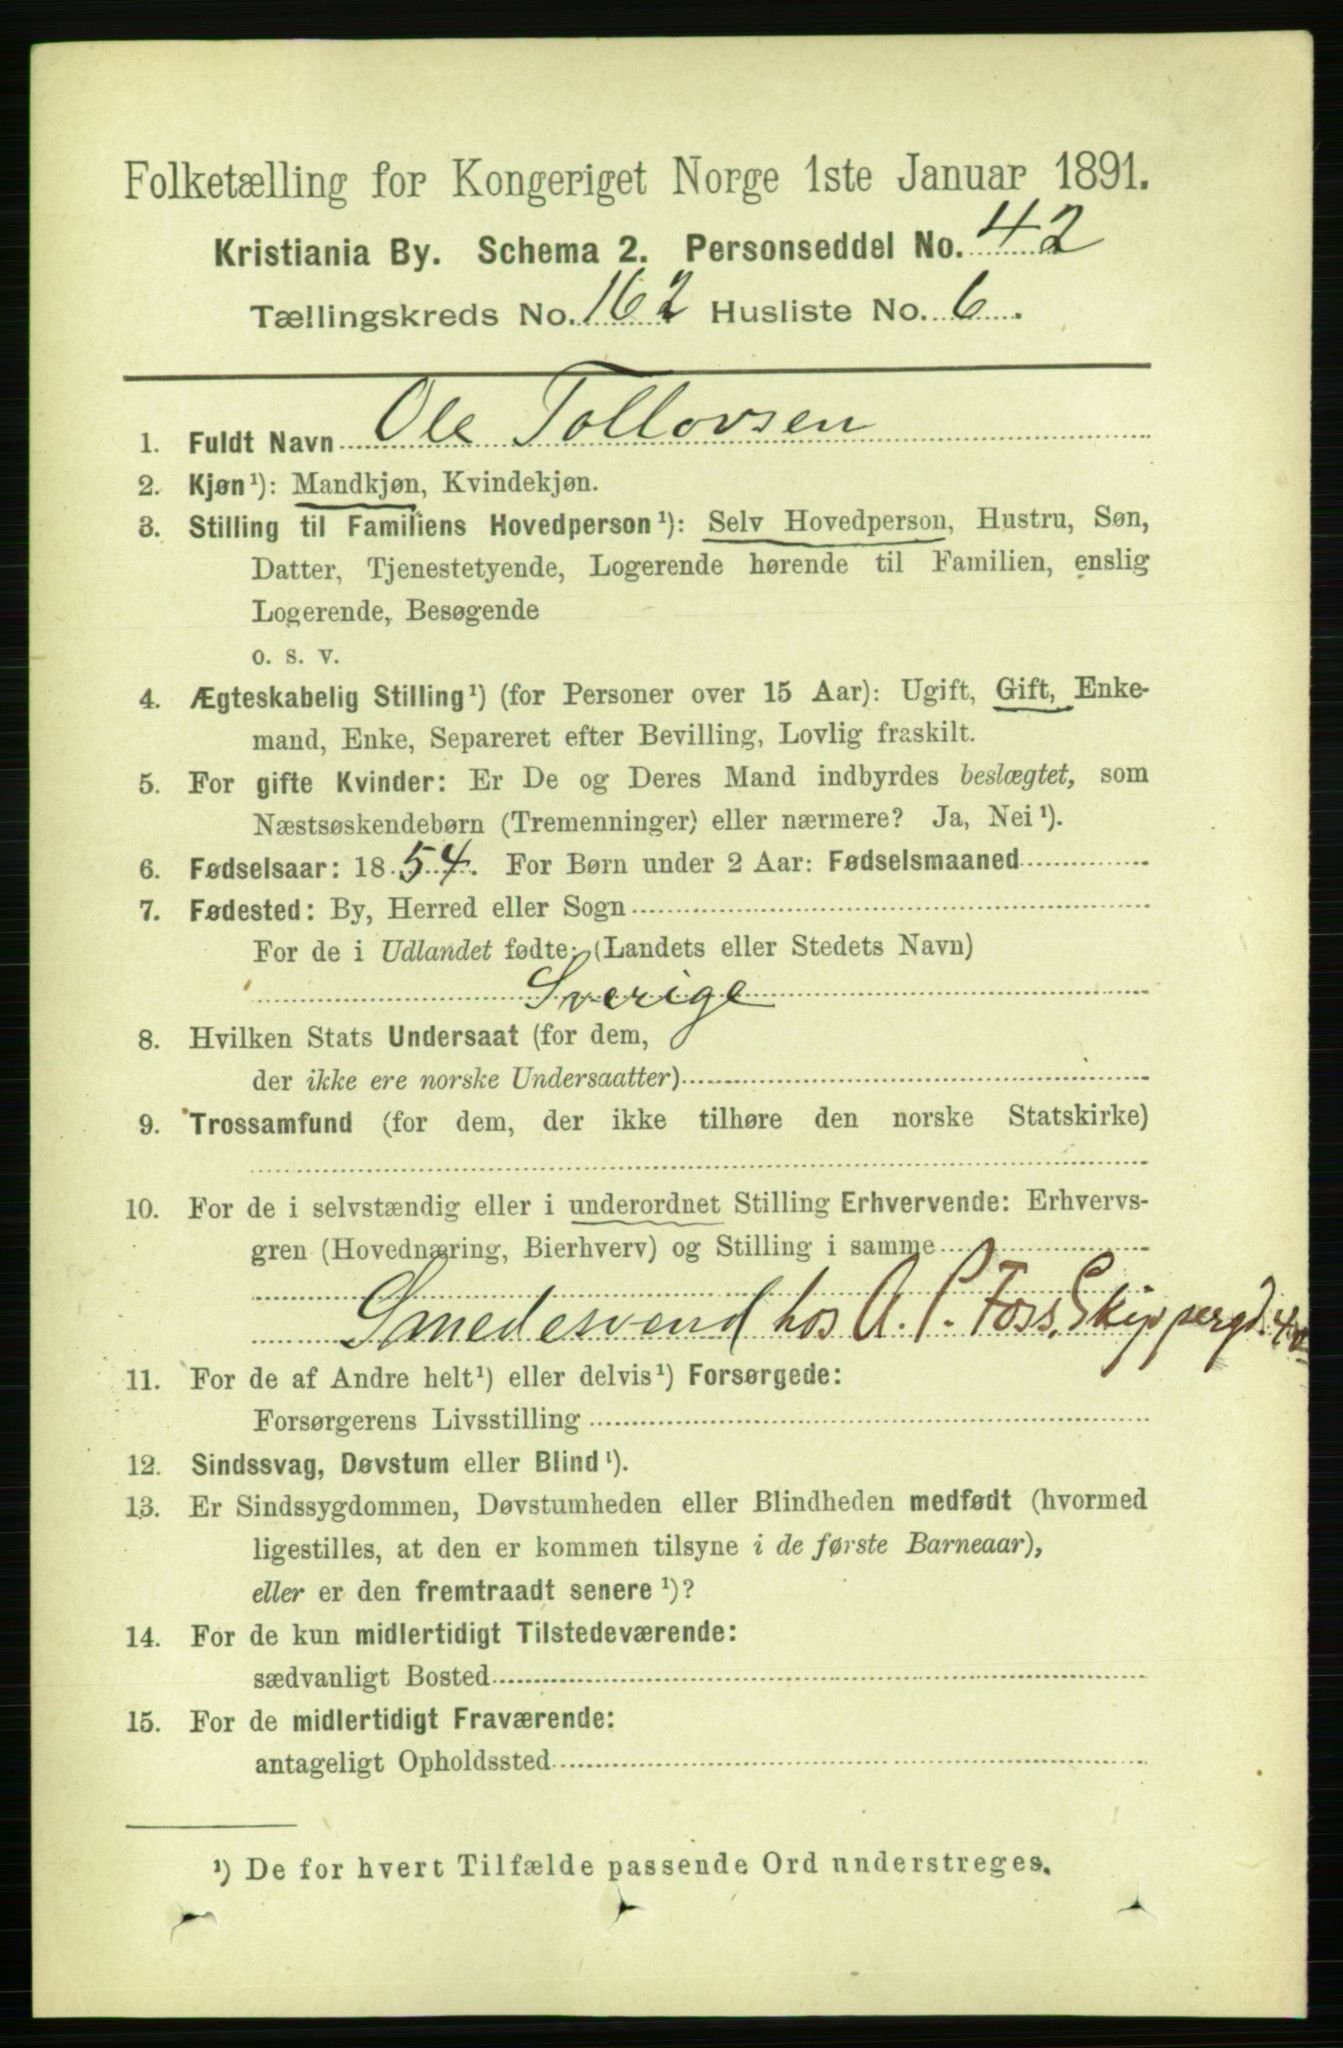 Folketælling for Kongeriget Norge 1ste Januar 1891.
Kristiania By. Schema 2. Personseddel No. 42
Tællingskreds No. 162 Husliste No. 6.
1. Fuldt Navn Ole Tollovsen
2. Kjøn¹): Mandkjøn, Kvindekjøn.
3. Stilling til Familiens Hovedperson¹): Selv Hovedperson, Hustru, Søn,
Datter, Tjenestetyende, Logerende hørende til Familien, enslig
Logerende, Besøgende
o. s. v.
4. Ægteskabelig Stilling¹) (for Personer over 15 Aar): Ugift, Gift, Enke-
mand, Enke, Separeret efter Bevilling, Lovlig fraskilt.
5. For gifte Kvinder: Er De og Deres Mand indbyrdes beslægtet, som
Næstsøskendebørn (Tremenninger) eller nærmere? Ja, Nei¹).
6. Fødselsaar: 1854. For Børn under 2 Aar: Fødselsmaaned
7. Fødested: By, Herred eller Sogn
For de i Udlandet fødte: (Landets eller Stedets Navn)
Sverige
8. Hvilken Stats Undersaat (for dem,
der ikke ere norske Undersaatter)
9. Trossamfund (for dem, der ikke tilhøre den norske Statskirke)
10. For de i selvstændig eller i underordnet Stilling Erhvervende: Erhvervs-
gren (Hovednæring, Bierhverv) og Stilling i samme
Smedesvend hos A. P. Foss. Skippergd.
11. For de af Andre helt¹) eller delvis¹) Forsørgede:
Forsørgerens Livsstilling
12. Sindssvag, Døvstum eller Blind¹).
13. Er Sindssygdommen, Døvstumheden eller Blindheden medfødt (hvormed
ligestilles, at den er kommen tilsyne i de første Barneaar),
eller er den fremtraadt senere¹)?
14. For de kun midlertidigt Tilstedeværende:
sædvanligt Bosted
15. For de midlertidigt Fraværende:
antageligt Opholdssted
¹) De for hvert Tilfælde passende Ord understreges.